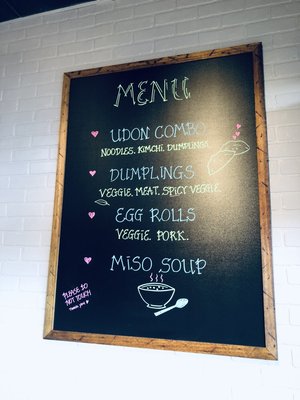 MENU
UDON COMBO
NOODLES. KIMCHI. DUMPLINGS.
DUMPLINGS
VEGGIE. MEAT. SPICY VEGGIE.
EGG ROLLS
VEGGIE. PORK.
MISO SOUP
PLEASE DO
NOT TOUCH
THANK YOU